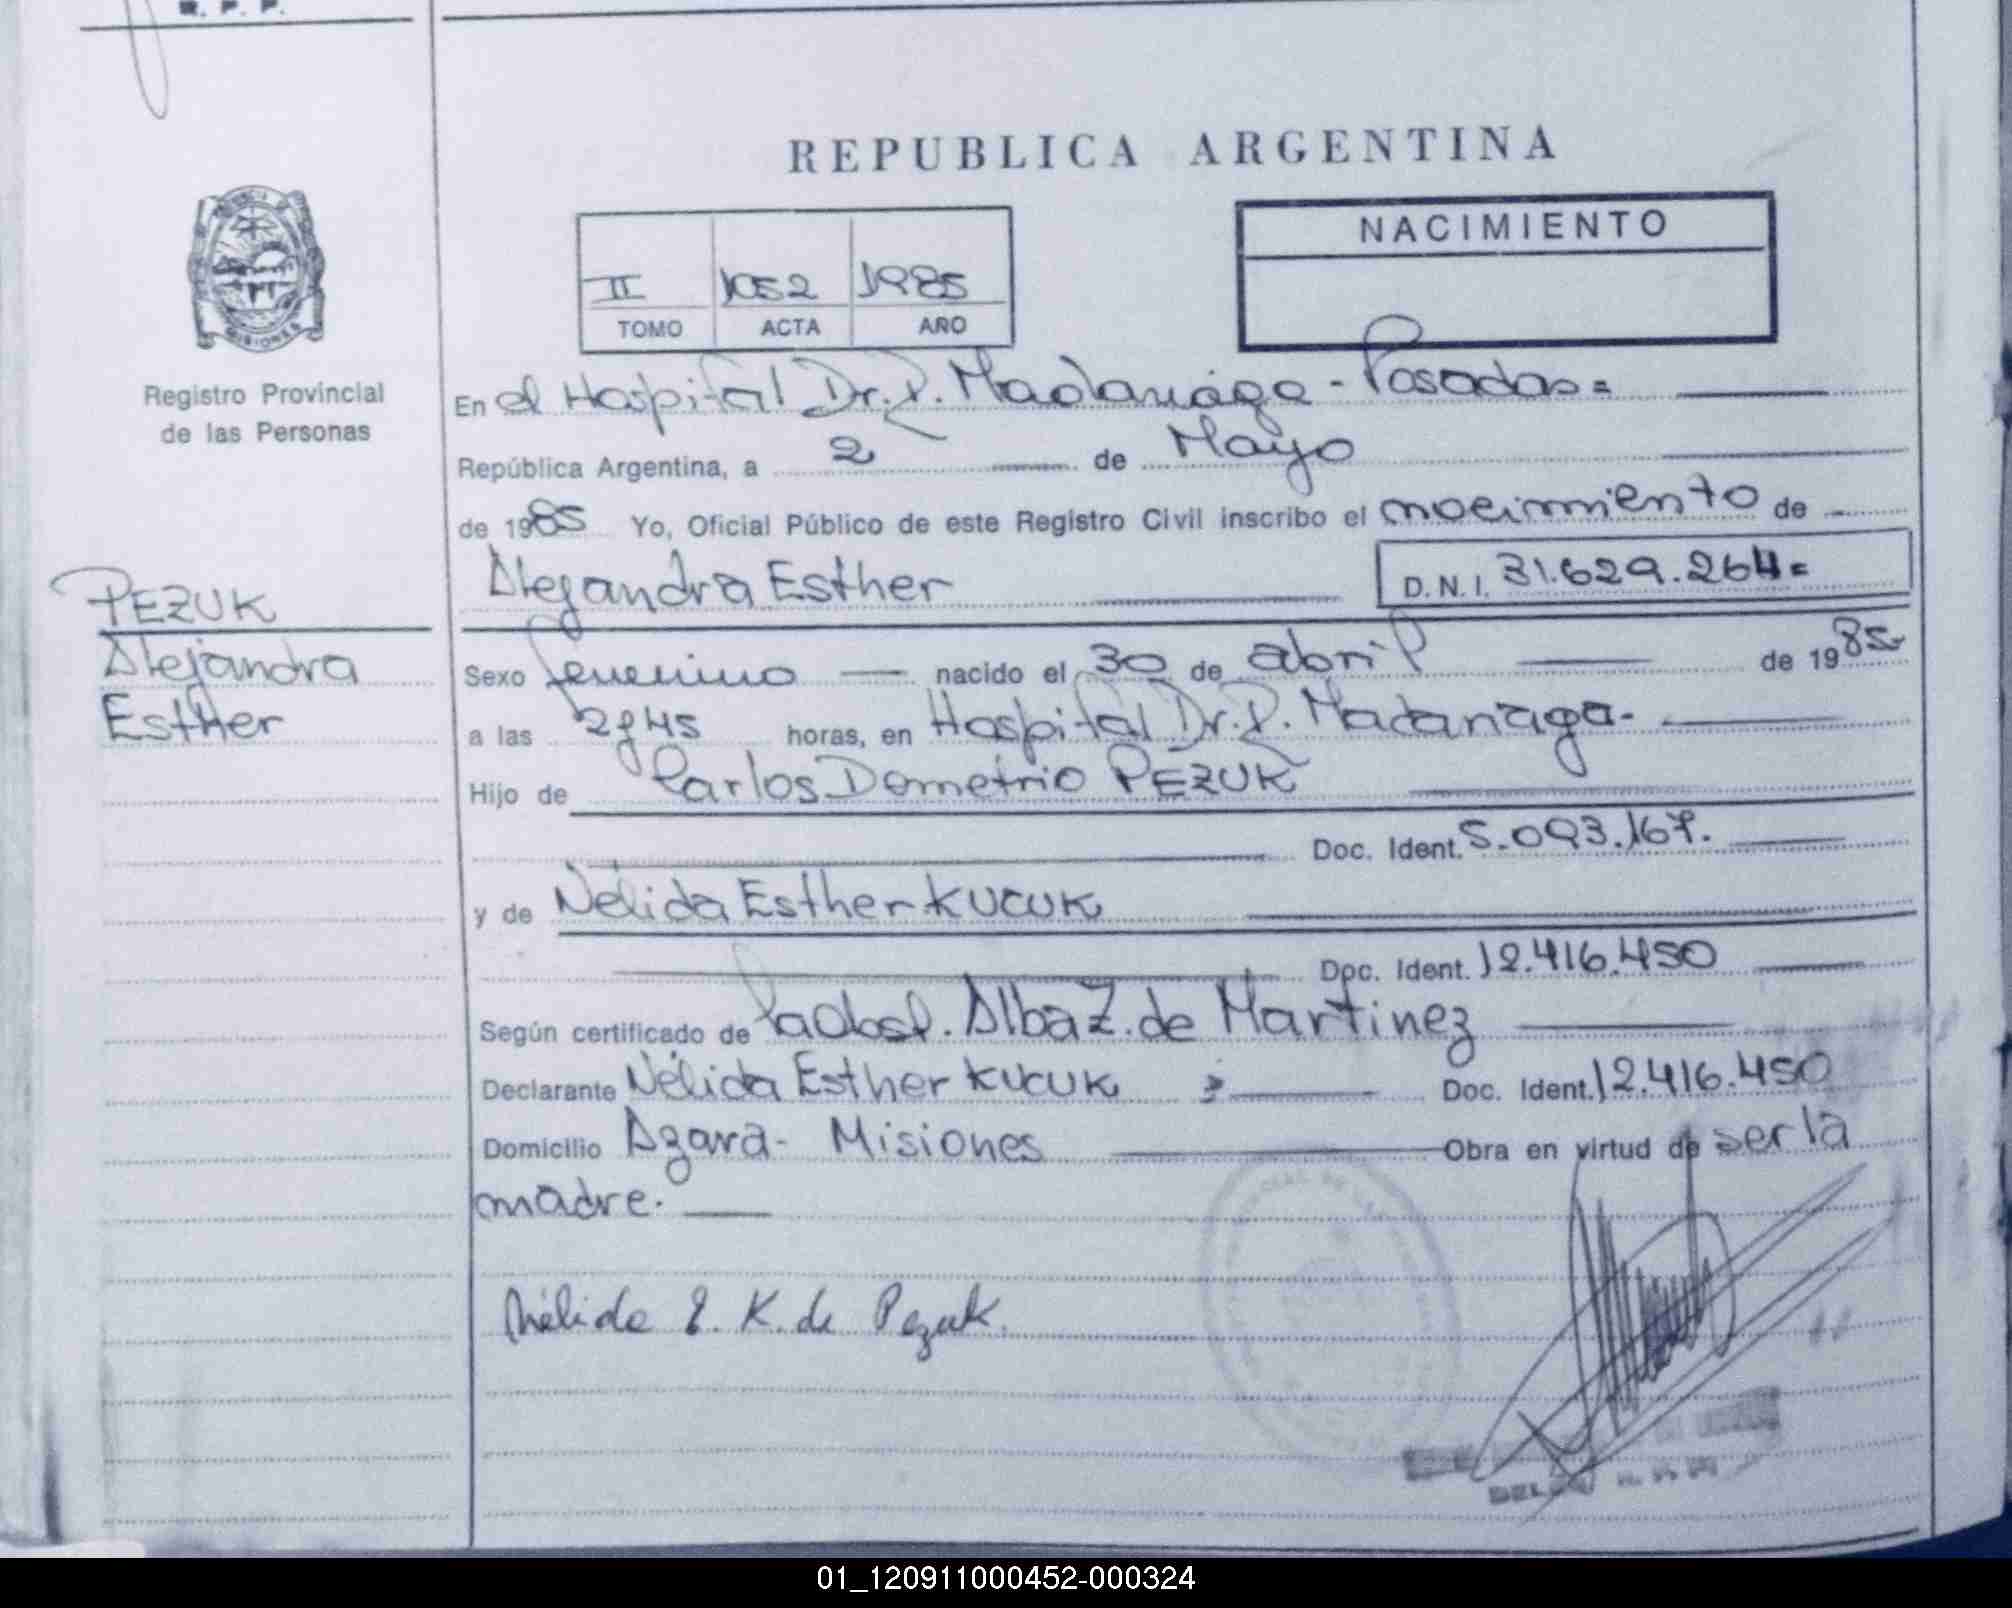 R. P. P.
REPUBLICA ARGENTINA
NACIMIENTO
II 1052 1985
TOMO ACTA AÑO
MISIONES
Registro Provincial
de las Personas
En el Hospital Dr. R. Madariaga - Posadas =
República Argentina, a 2 de Mayo
de 1985 Yo, Oficial Público de este Registro Civil inscribo el nacimiento de
Alejandra Esther D.N.I. 31.629.264=
PEZUK
Alejandra
Esther
Sexo femenino nacido el 30 de abril de 1985
a las horas, en Hospital Dr. R. Madariaga-
Hijo de Carlos Demetrio PEZUK
Doc. Ident. 5.093.167.
y de Nélida Esther KUCUK
Doc. Ident. 12.416.450
Según certificado de Alba Z. de Martinez
Declarante Nélida Esther KUCUK Doc. Ident. 12.416.450
Domicilio Azara - Misiones Obra en virtud de ser la
madre.
Nélida E. K. de Pezuk
01_120911000452-000324